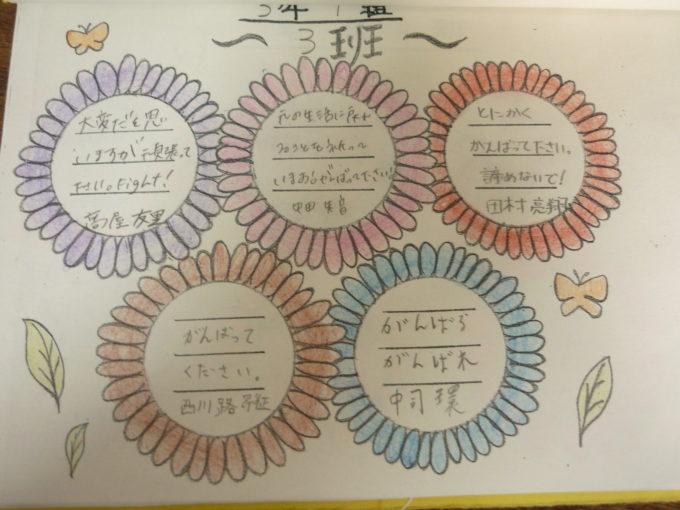 3年1組
3班
大変だと思
いますが頑張って
下さい。Fight!
友里
元の生活に戻れ
ることをねがって
います。がんばって下さい!
とにかく
がんばって下さい。
諦めないで!
田村 亮翔
がんばって
ください。
西川 路
がんばろう
がんばれ
中司 環